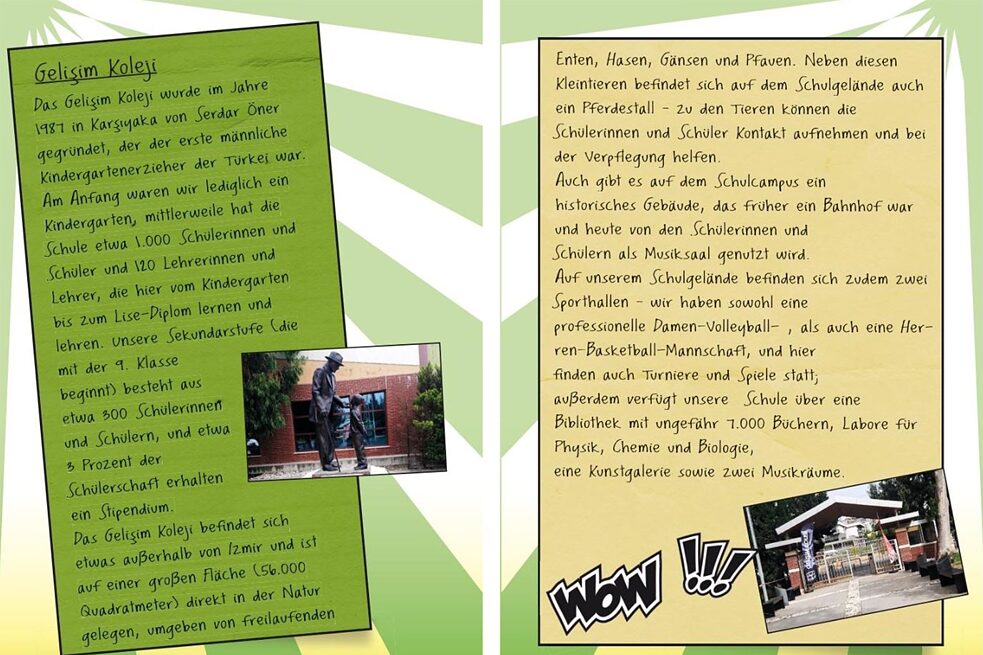 Gelişim Koleji
Das Gelişim Koleji wurde im Jahre
1987 in Karşıyaka von Serdar Öner
gegründet, der der erste männliche
Kindergartenerzieher der Türkei war.
Am Anfang waren wir lediglich ein
Kindergarten, mittlerweile hat die
Schule etwa 1.000 Schülerinnen und
Schüler und 120 Lehrerinnen und
Lehrer, die hier vom Kindergarten
bis zum Lise-Diplom lernen und
lehren. Unsere Sekundarstufe (die
mit der 9. Klasse
beginnt) besteht aus
etwa 300 Schülerinnen
und Schülern, und etwa
3 Prozent der
Schülerschaft erhalten
ein Stipendium.
Das Gelişim Koleji befindet sich
etwas außerhalb von Izmir und ist
auf einer großen Fläche (56.000
Quadratmeter) direkt in der Natur
gelegen, umgeben von freilaufenden
Enten, Hasen, Gänsen und Pfauen. Neben diesen
Kleintieren befindet sich auf dem Schulgelände auch
ein Pferdestall - zu den Tieren können die
Schülerinnen und Schüler Kontakt aufnehmen und bei
der Verpflegung helfen.
Auch gibt es auf dem Schulcampus ein
historisches Gebäude, das früher ein Bahnhof war
und heute von den Schülerinnen und
Schülern als Musiksaal genutzt wird.
Auf unserem Schulgelände befinden sich zudem zwei
Sporthallen - wir haben sowohl eine
professionelle Damen-Volleyball- , als auch eine Her-
ren-Basketball-Mannschaft, und hier
finden auch Turniere und Spiele statt;
außerdem verfügt unsere Schule über eine
Bibliothek mit ungefähr 7.000 Büchern, Labore für
Physik, Chemie und Biologie,
eine Kunstgalerie sowie zwei Musikräume.
WOW !!!